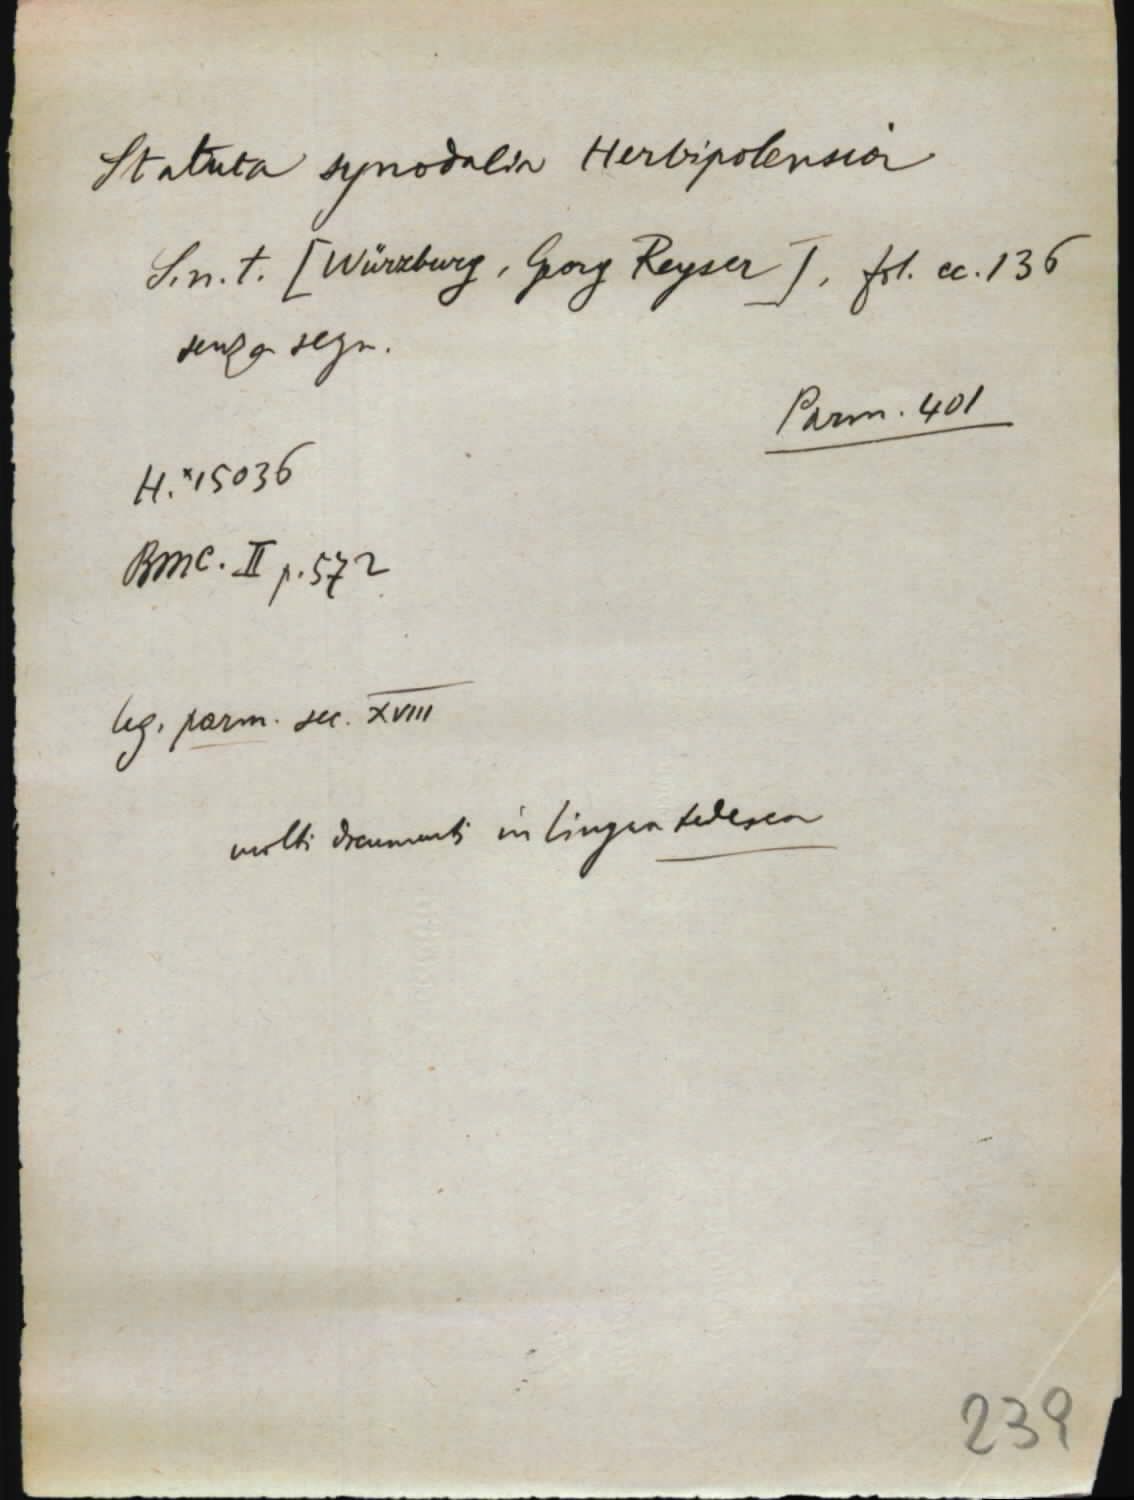 Statuta synodalia Herbipolensia
S.n.t. [Würzburg, Georg Reyser], fol. cc. 136
senza segn.
Parm. 401
H.*15036
BMC. II p. 572
leg. parm. sec. XVIII
molti documenti in lingua tedesca
239